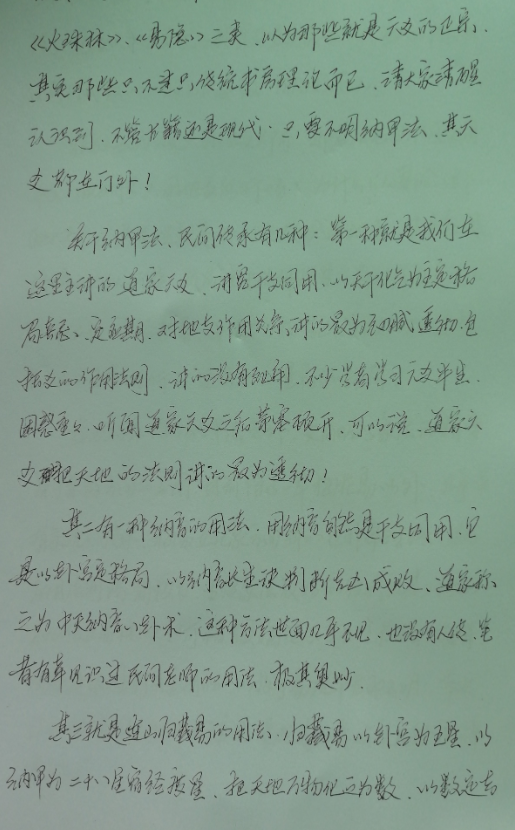 《火珠林》、《易隐》之类,以为那些就是六爻的正宗,
其实那些只不过只传统书房理论而已,请大家清醒
认识到,不管古籍还是现代,只要不明纳甲法,其六
爻都在门外!
关于纳甲法,民间传承有几种:第一种就是我们在
这里主讲的道家六爻,讲究干支同用,以天干化气为主定格
局、定应期,对地支作用关系讲的最为细腻透彻,包
括爻的作用法则,讲的没有歧用,不少学者学习六爻半生,
困惑重重,听闻道家六爻之后茅塞顿开,可以说,道家六
爻把天地的法则讲的最为透彻!
其二有一种纳音的用法,用纳音自然是干支同用,它
是以卦宫定格局,以纳音长生诀判断吉凶成败,道家称
之为中天纳音八卦术,这种方法世面几乎不见,也没有人传,笔
者有幸见识过民间老师的用法,极其奥妙。
其三就是连山归藏易的用法,归藏易以卦宫为五星,以
纳甲为二十八星宿经度星,把天地万物化之为数,以数定吉